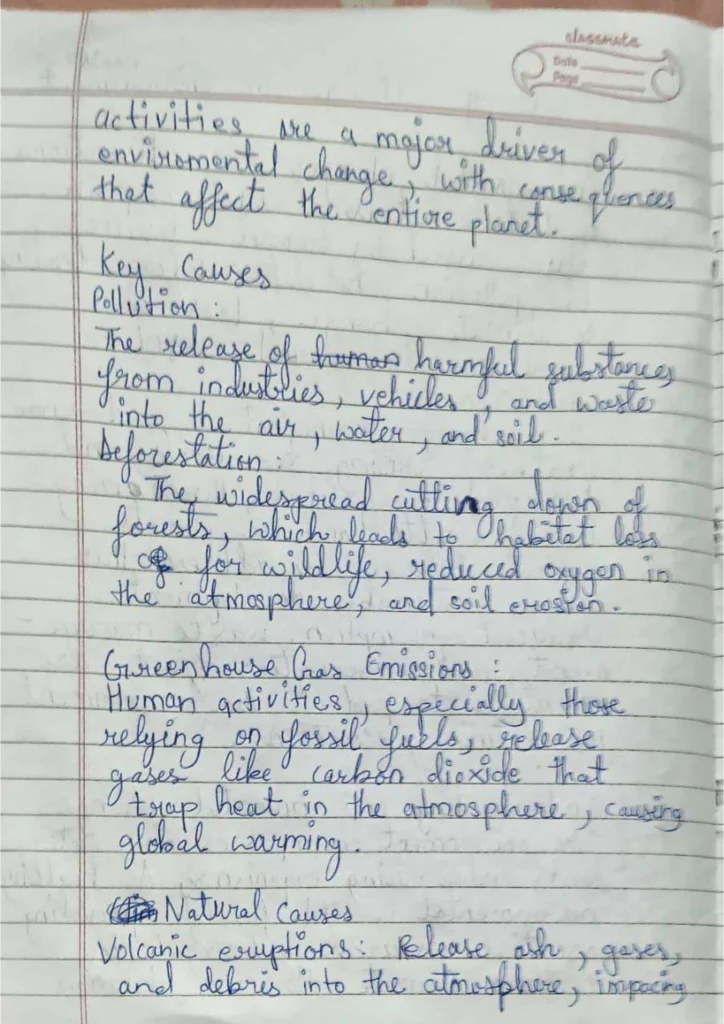 classmate
Date
Page
activities are a major driver of
enviromental change, with consequences
that affect the entire planet.
Key Causes
Pollution :
The release of human harmful substances
from industries, vehicles, and waste
into the air, water, and soil.
Deforestation :
The widespread cutting down of
forests, which leads to habitat loss
for wildlife, reduced oxygen in
the atmosphere, and soil erosion.
Greenhouse Gas Emissions :
Human activities, especially those
relying on fossil fuels, release
gases like carbon dioxide that
trap heat in the atmosphere, causing
global warming.
Natural Causes
Volcanic eruptions: Release ash, gases,
and debris into the atmosphere, impacing